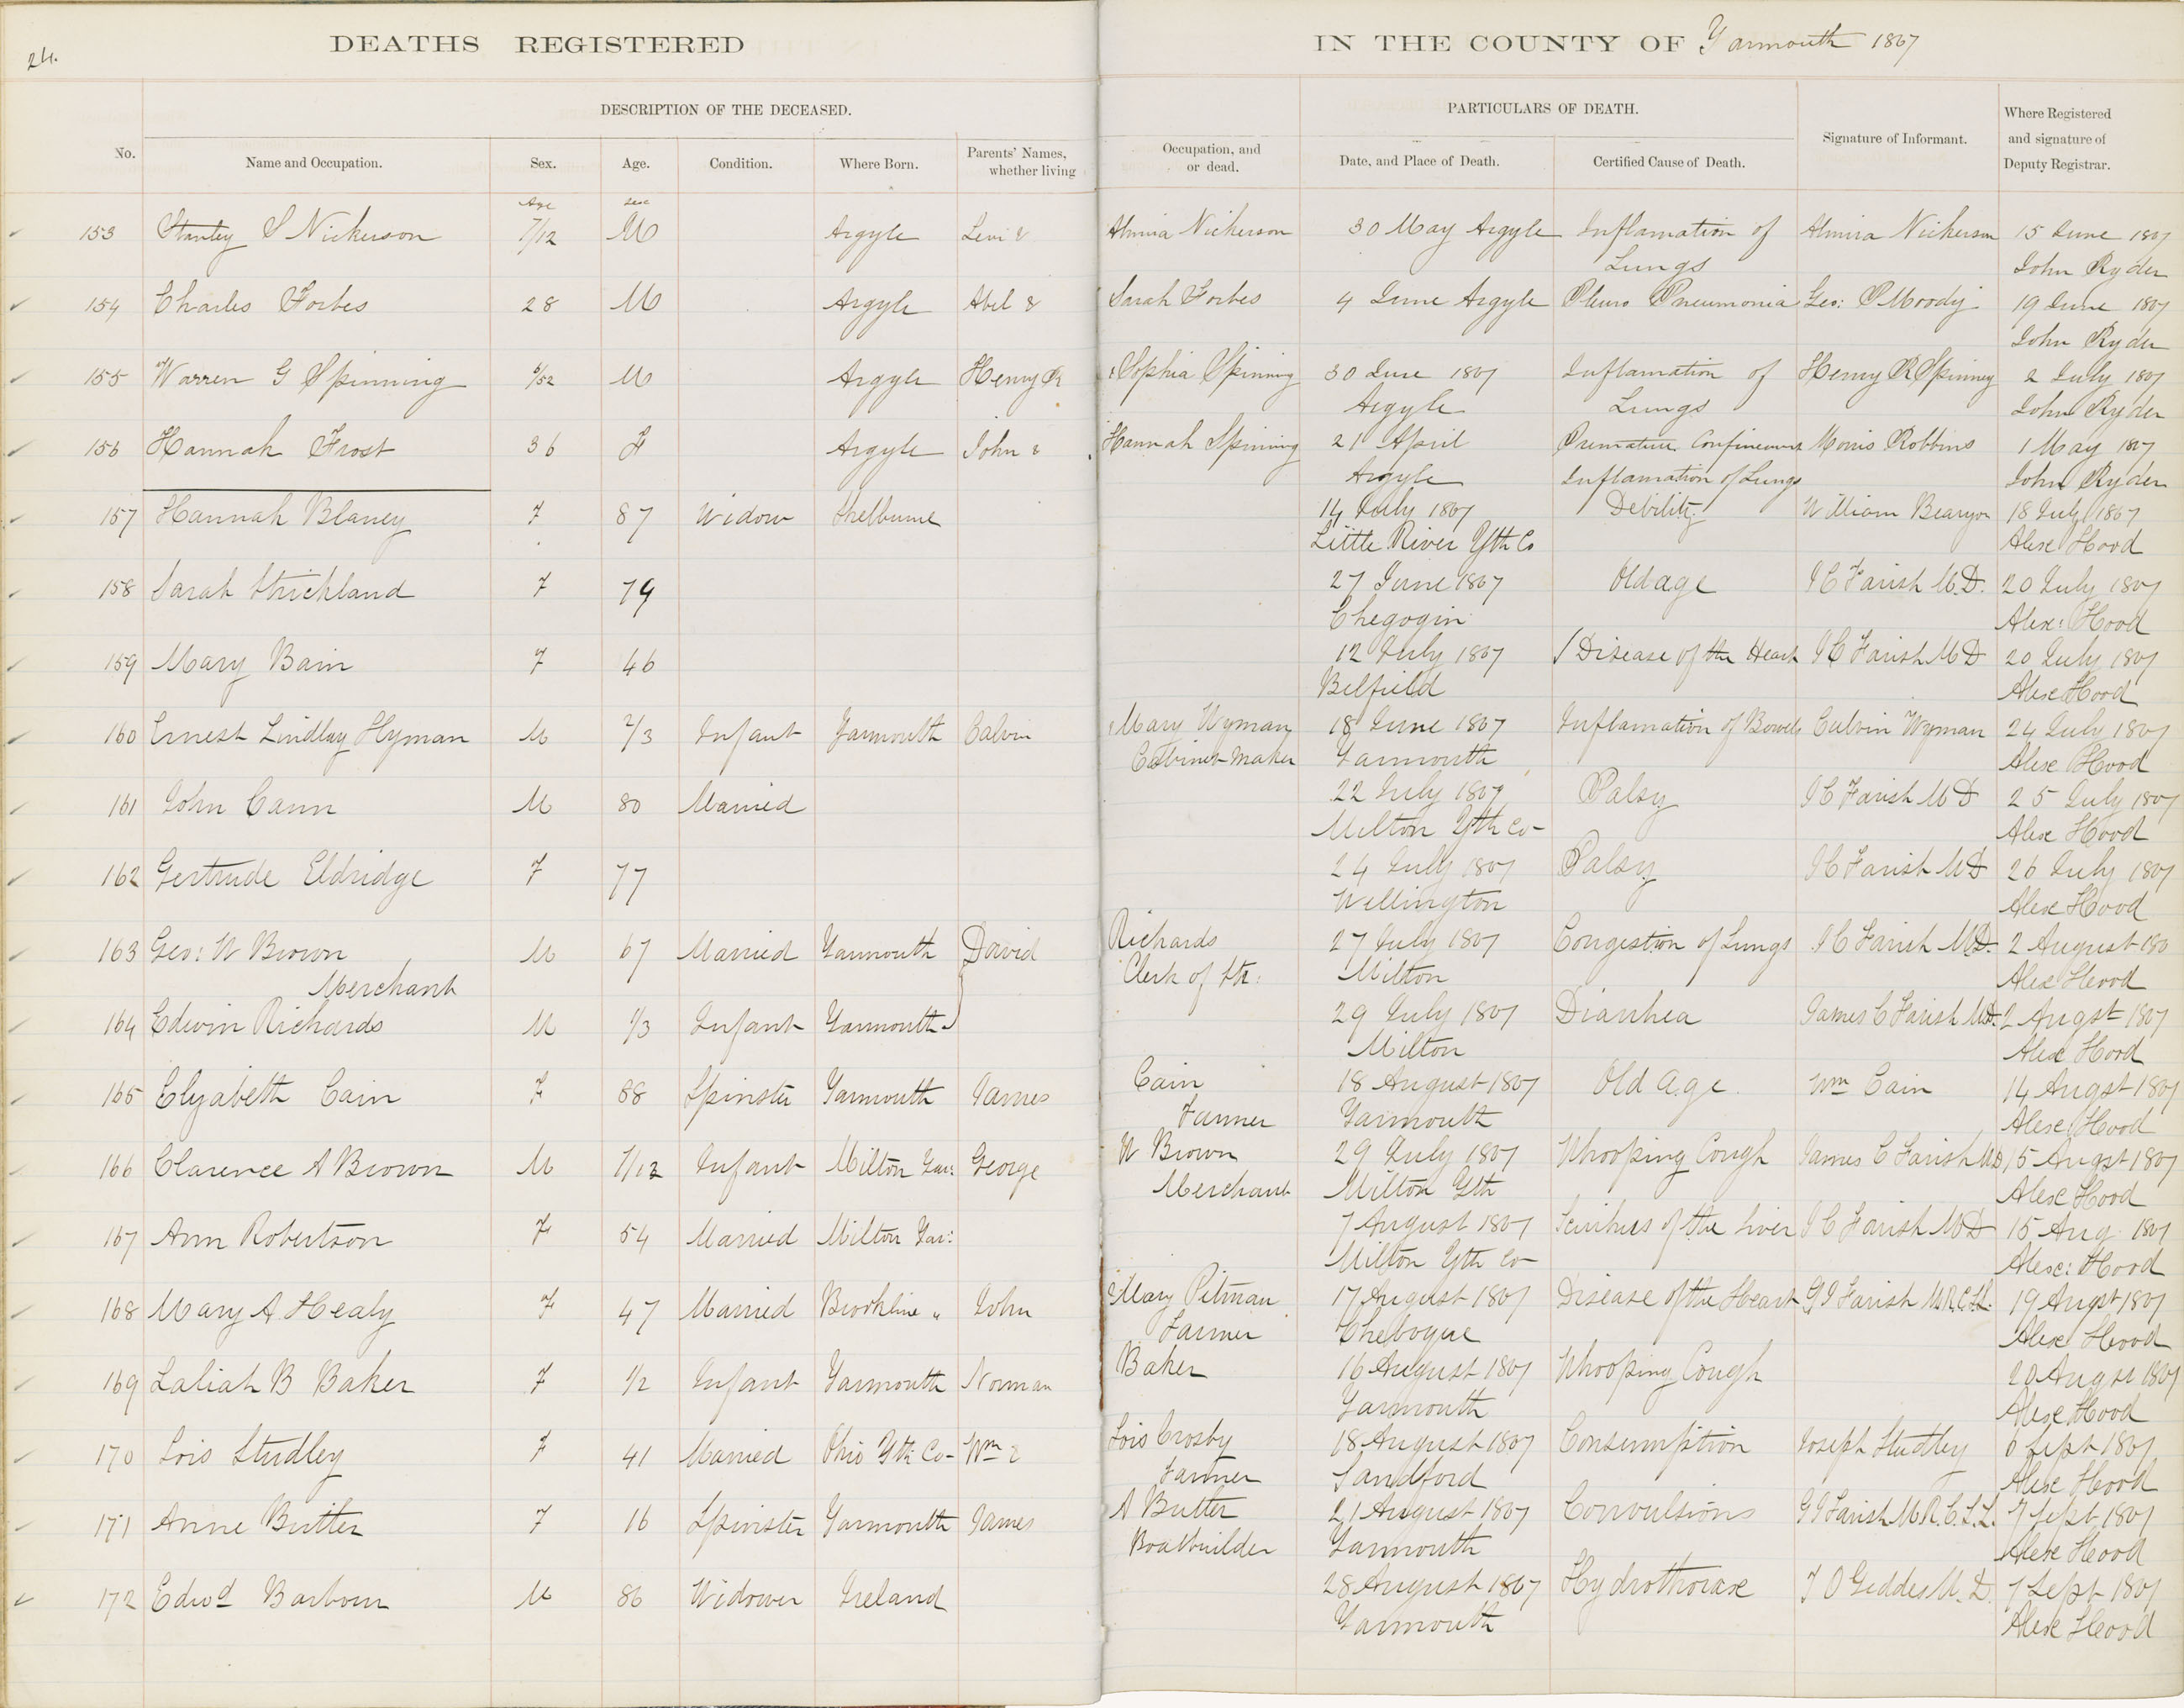 24.
DEATHS REGISTERED
IN THE COUNTY OF Yarmouth 1867
DESCRIPTION OF THE DECEASED.
PARTICULARS OF DEATH.
No. Name and Occupation. Sex. Age. Condition. Where Born. Parents' Names, whether living
Occupation, and or dead. Date, and Place of Death. Certified Cause of Death. Signature of Informant. Where Registered and signature of Deputy Registrar.
Age Sex
153 Stanley S Nickerson 7/12 M Argyle Levi & Almira Nickerson 30 May Argyle Inflamation of Almira Nickerson 15 June 1867
Lungs John Ryder
154 Charles Forbes 28 M Argyle Abel & Sarah Forbes 4 June Argyle Pleuro Pneumonia Geo: P Moody 19 June 1867
John Ryder
155 Warren G Spinning /52 M Argyle Henry R & Sophia Spinning 30 June 1867 Inflamation of Henry R Spinney 2 July 1867
Argyle Lungs John Ryder
156 Hannah Frost 36 F Argyle John & Hannah Spinning 21 April Premature Confinement Morris Robbins 1 May 1867
Argyle Inflamation of Lungs John Ryder
157 Hannah Blaney F 87 Widow Shelburne 14 July 1867 Debility William 18 July 1867
Little River Yth Co Alex Hood
158 Sarah Strickland F 79 27 June 1867 Old age J C Farish M.D. 20 July 1867
Chegogin Alex: Hood
159 Mary Bain F 46 12 July 1867 Disease of the Heart J C Farish M D 20 July 1867
Belfield Alex Hood
160 Ernest Lindlay Hyman M 2/3 Infant Yarmouth Calvin & Mary Wyman 18 June 1867 Inflamation of Bowels Calvin Wyman 24 July 1867
Cabinet-Maker Yarmouth Alex Hood
161 John Cann M 80 Married 22 July 1867 Palsy J C Farish M D 25 July 1867
Milton Yth Co- Alex Hood
162 Gertrude Eldridge F 77 24 July 1867 Palsy J C Farish M D 26 July 1867
Wellington Alex Hood
163 Geo: W Brown M 67 Married Yarmouth David Richards 27 July 1867 Congestion of Lungs J C Farish M.D. 2 August 186
Merchant Clerk of Milton Alex Hood
164 Edwin Richards M 1/3 Infant Yarmouth 29 July 1867 Diarrhea James C Farish M.D. 2 Augst 1867
Milton Alex Hood
165 Elizabeth Cain F 88 Spinster Yarmouth James Cain 18 August 1867 Old age Wm Cain 14 Augst 1867
Farmer Yarmouth Alex Hood
166 Clarence A Brown M 1/12 Infant Milton Yar: George W Brown 29 July 1867 Whooping Cough James C Farish M D 15 Augst 1867
Merchant Milton Yth Alex Hood
167 Ann Robertson F 54 Married Milton Yar: 7 August 1867 Scirrhus of the Liver J C Farish M D 15 Aug 1867
Milton Yth Co- Alex: Hood
168 Mary A Healy F 47 Married Brookline " John & Mary Pitman 17 August 1867 Disease of the Heart G J Farish 19 Augst 1867
Farmer Chebogue Alex Hood
169 Laliah B Baker F 1/2 Infant Yarmouth Norman Baker 16 August 1867 Whooping Cough 20 Augst 1867
Yarmouth Alex Hood
170 Lois Studley F 41 Married Ohio Yth Co- Wm & Lois Crosby 18 August 1867 Consumption Joseph Studley 6 Sept 1867
Farmer Sandford Alex Hood
171 Anne Butler F 16 Spinster Yarmouth James A Butler 21 August 1867 Convulsions G J Farish M.R.C.S.L. 7 Sept 1867
Boatbuilder Yarmouth Alex Hood
172 Edwd Barbour M 86 Widower Ireland 28 August 1867 Hydrothorax J O Geddes M.D. 7 Sept 1867
Yarmouth Alex Hood